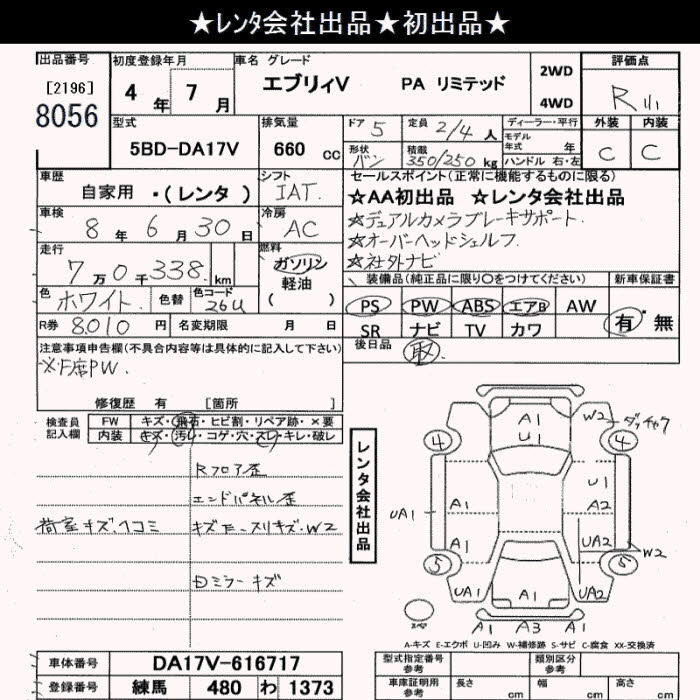 ★レンタ会社出品★初出品★
出品番号 初度登録年月 車名 グレード 評価点
[2196] 8056 4 年 7 月 エブリィV PA リミテッド 2WD 4WD R
外装 内装
C C
型式 排気量 ドア 5 定員 2/4 人 ディーラー・平行
モデル年式 年
5BD-DA17V 660 cc 形状 バン 積載 350/250 kg ハンドル 右・左
車歴 シフト セールスポイント(正常に機能するものに限る)
自家用 ・(レンタ) IAT ☆AA初出品 ☆レンタ会社出品
車検 8 年 6 月 30 日 冷房 AC ☆デュアルカメラブレーキサポート
☆オーバーヘッドシェルフ
走行 7 万 0 千 338 km 燃料 ガソリン 軽油 ( ) ☆社外ナビ
装備品(純正品に限り○をつけてください) 新車保証書
色 ホワイト 色替 色コード 26U PS PW ABS エアB AW 有・無
R券 8010 円 名変期限 月 日 SR ナビ TV カワ
後日品 取
注意事項申告欄(不具合内容等は具体的に記入して下さい)
※F席PW.
修復歴 有 [箇所
検査員記入欄 FW キズ・飛石・ヒビ割・リペア跡・×要
内装 キズ・汚レ・コゲ・穴・スレ・キレ・破レ
Rフロア歪
エンドパネル歪
荷室キズ、ヘコミ キズモ-スリキズ・W2
ミラーキズ
レンタ会社出品
A1 W2 ダッチャク
4 U1 4
U1
A1 A2
UA1
A1 UA2
W2
5 5
UA1 A1 UA2
スペ A1 A3 A1
A-キズ E-エクボ U-凹み W-補修跡 S-サビ C-腐食 XX-交換済
車体番号 DA17V-616717 型式指定番号 参考 類別区分 参考
登録番号 練馬 480 わ 1373 車庫証明用 参考 長さ cm 幅 cm 高さ cm